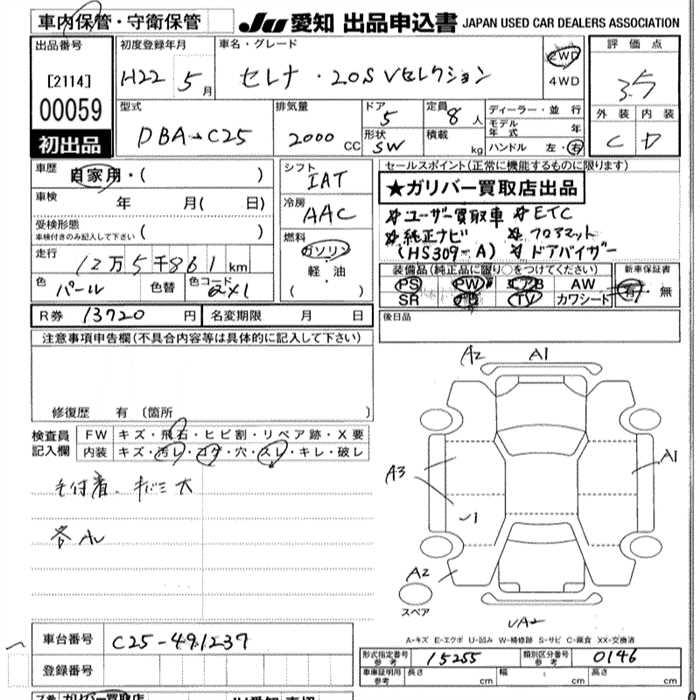 車内保管・守衛保管
JU 愛知 出品申込書 JAPAN USED CAR DEALERS ASSOCIATION
出品番号
[2114]
00059
初出品
初度登録年月
H22 5 月
車名・グレード
セレナ・20S Vセレクション
2WD
4WD
評価点
3.5
外装 内装
C D
型式
DBA-C25
排気量
2000 CC
ドア
5
形状
SW
定員
8 人
積載
kg
ディーラー・並行
モデル年式 年
ハンドル 左・右
車歴
自家用・( )
車検
年 月( 日)
受検形態
車検付きのみ記入して下さい ( )
走行
12万5千861 km
色
パール
色替
色コード
QX1
シフト
IAT
冷房
AAC
燃料
ガソリン
軽・油
( )
セールスポイント(正常に機能するものに限ります)
★ガリバー買取店出品
☆ユーザー買取車 ☆ETC
☆純正ナビ ☆フロアマット
(HS309-A) ☆ドアバイザー
装備品(純正品に限り○をつけてください)
PS PW エアB AW
SR TV カワシート
新車保証書
有・無
R券 13720 円
名変期限 月 日
後日品
注意事項申告欄(不具合内容等は具体的に記入して下さい)
修復歴 有 〔箇所 〕
検査員記入欄
FW キズ・飛石・ヒビ割・リペア跡・X要
内装 キズ・汚レ・コゲ・穴・スレ・キレ・破レ
毛付着、キバミ大
A2 A1
A3
A1
A2
スペア
UA2
A-キズ E-エクボ U-凹み W-補修跡 S-サビ C-腐食 XX-交換済
車台番号 C25-491237
登録番号
形式指定番号 参考 15255
類別区分番号 参考 0146
車庫証明用 参考 長さ cm 幅 cm 高さ cm
ガリバー買取店